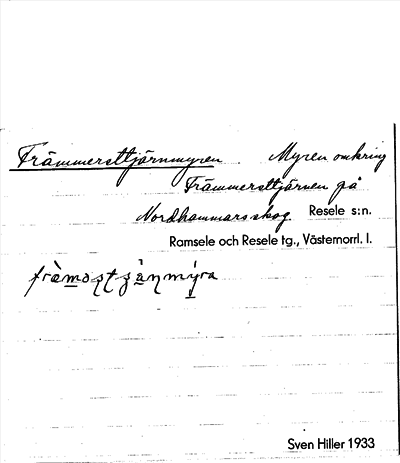 Främmersttjärnmyren. Myren omkring
Främmersttjärnen på
Nordhammars skog. Resele s:n.
Ramsele och Resele tg., Västernorrl. l.
Sven Hiller 1933